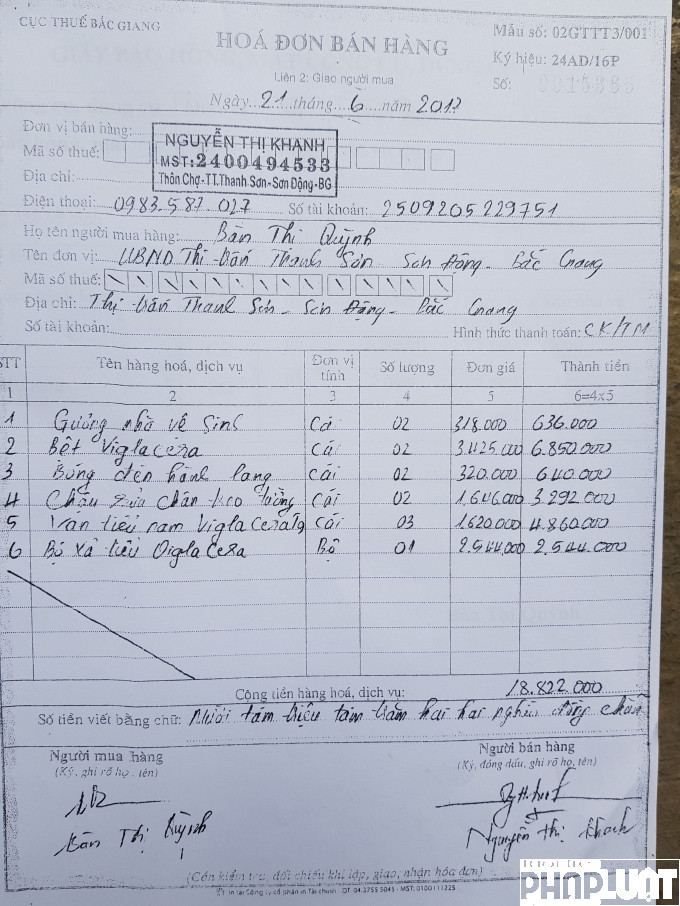 CỤC THUẾ BẮC GIANG
Mẫu số: 02GTTT3/001
HOÁ ĐƠN BÁN HÀNG
Ký hiệu: 24AD/16P
Liên 2: Giao người mua
Số: 0015365
Ngày 21 tháng 6 năm 2017
Đơn vị bán hàng:
NGUYỄN THỊ KHANH
Mã số thuế:
MST: 2400494533
Địa chỉ:
Thôn Chợ-TT.Thanh Sơn-Sơn Động-BG
Điện thoại: 0983.587.027 Số tài khoản: 2509205229751
Họ tên người mua hàng: Bàn Thị Quỳnh
Tên đơn vị: UBND Thị trấn Thanh Sơn - Sơn Động - Bắc Giang
Mã số thuế:
Địa chỉ: Thị trấn Thanh Sơn - Sơn Động - Bắc Giang
Số tài khoản: Hình thức thanh toán: CK/TM
STT Tên hàng hoá, dịch vụ Đơn vị tính Số lượng Đơn giá Thành tiền
1 2 3 4 5 6=4x5
1 Gương nhà vệ sinh Cái 02 318.000 636.000
2 Bệt Viglacera Cái 02 3.425.000 6.850.000
3 Bóng đèn hành lang Cái 02 320.000 640.000
4 Chậu rửa chân treo tường Cái 02 1.646.000 3.292.000
5 Van tiểu nam Viglacera Cái 03 1620.000 4.860.000
6 Bộ xả tiểu Viglacera Bộ 01 2.544.000 2.544.000
Cộng tiền hàng hoá, dịch vụ: 18.822.000
Số tiền viết bằng chữ: Mười tám triệu tám trăm hai hai nghìn đồng chẵn
Người mua hàng Người bán hàng
(Ký, ghi rõ họ, tên) (Ký, đóng dấu, ghi rõ họ, tên)
Bàn Thị Quỳnh
Nguyễn Thị Khanh
(Cần kiểm tra, đối chiếu khi lập, giao, nhận hóa đơn)
in tại Công ty cổ phần in Tài chính ĐT 04.3755 5045 - MST: 0100111225
PHÁP LUẬT